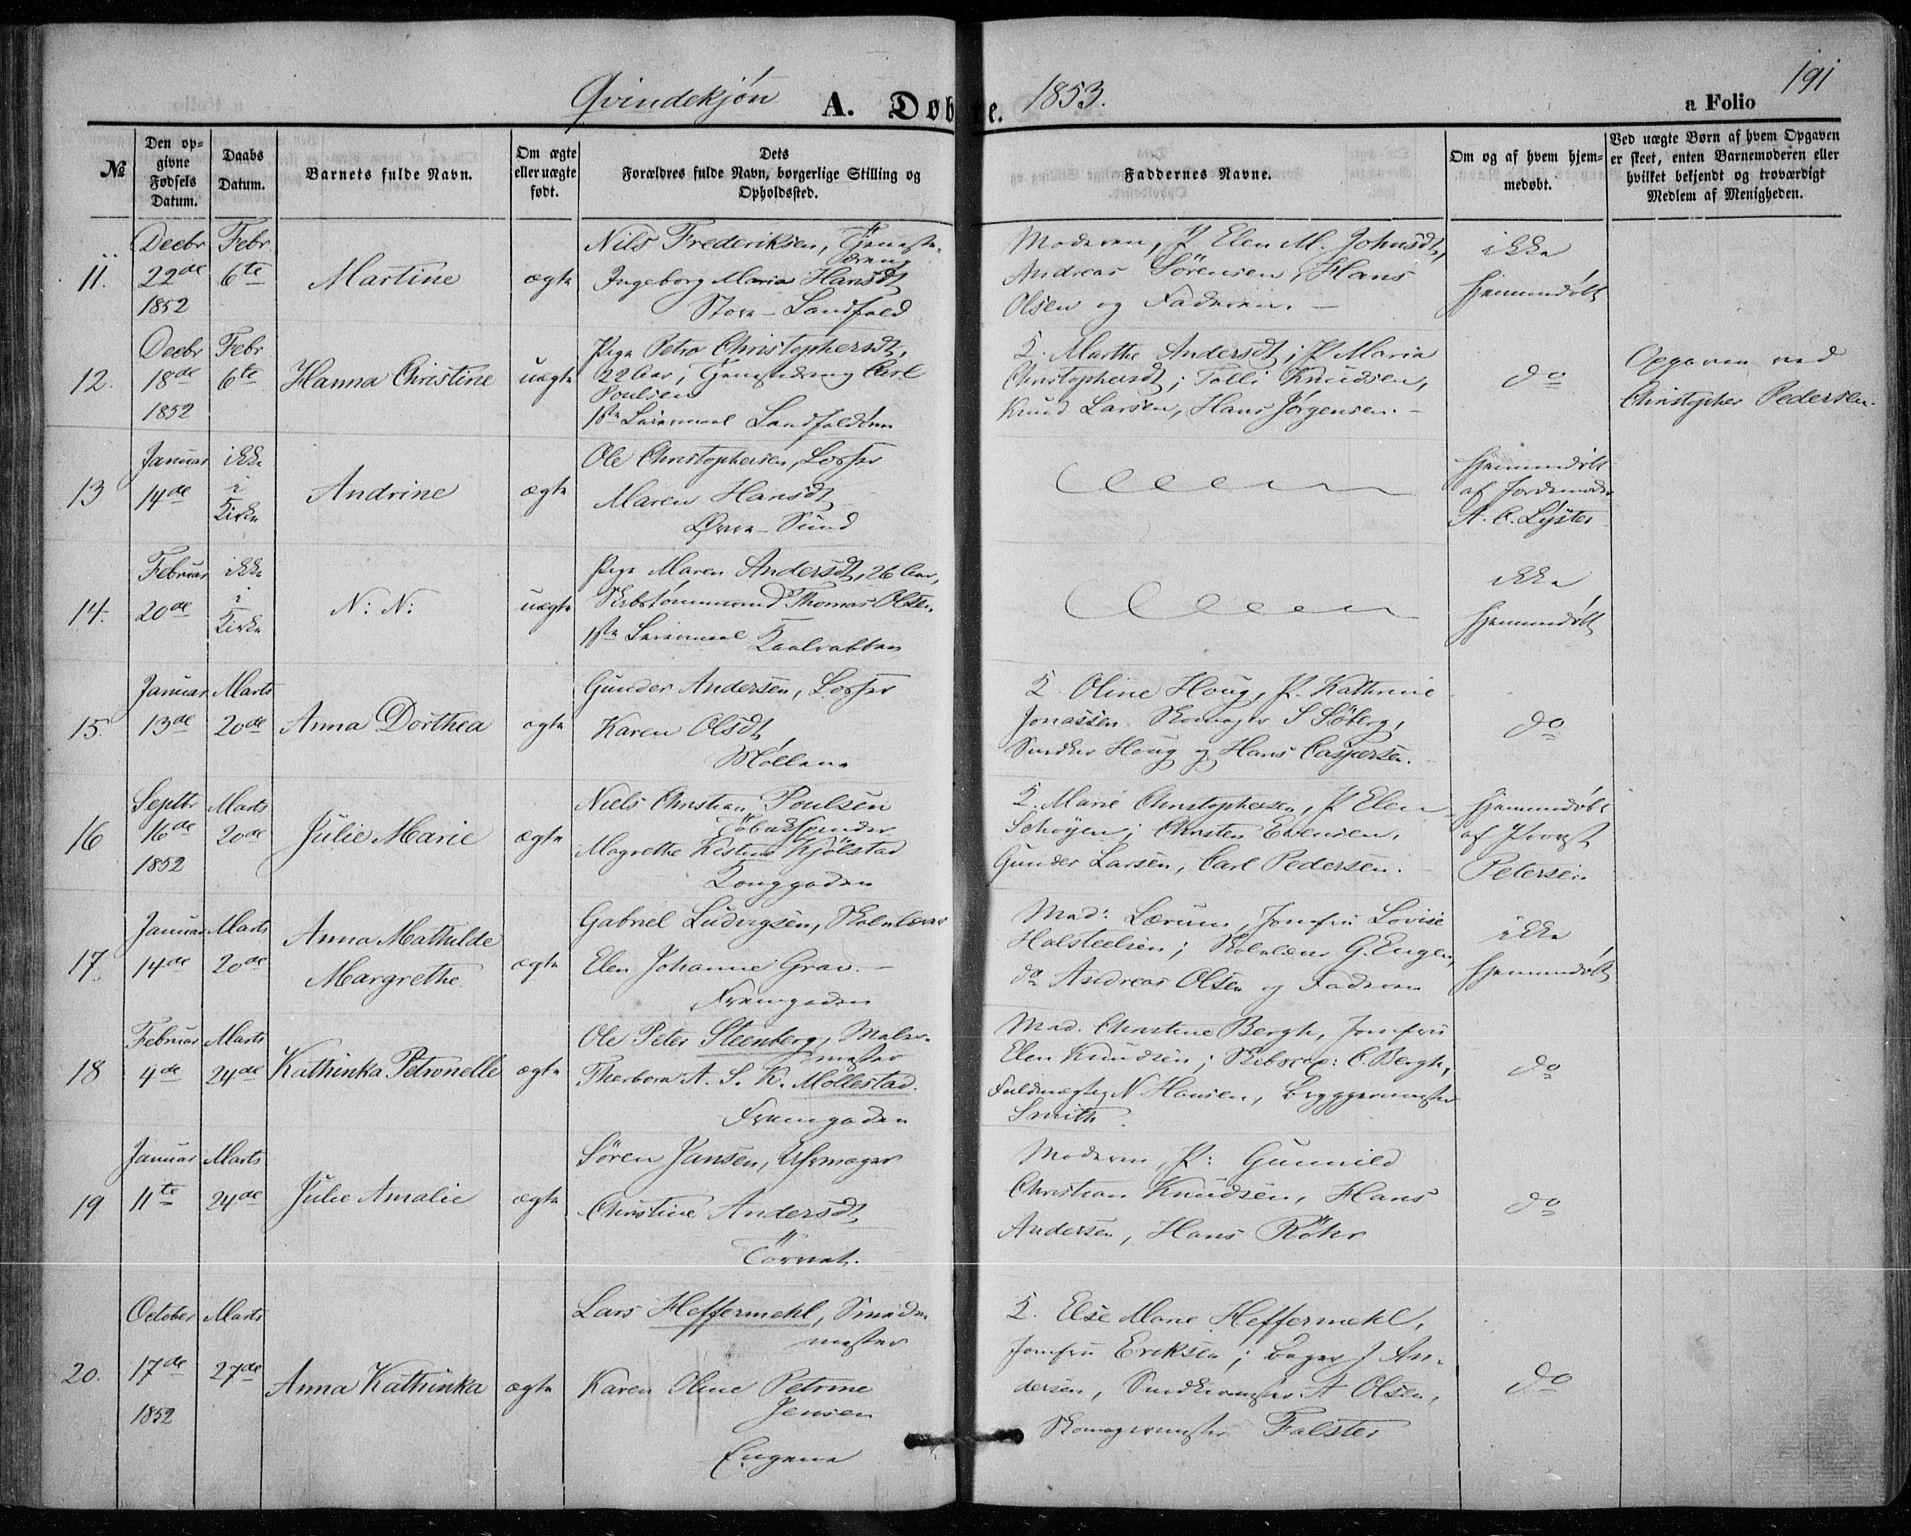 Qvindekjøn A. Døbte. 1853. a Folio 191
№
Den op-
givne
Fødsels
Datum.
Daabs
Datum.
Barnets fulde Navn.
Om ægte
eller uægte
født.
Dets
Forældres fulde Navn, borgerlige Stilling og
Opholdssted.
Faddernes Navne.
Om og af hvem hjem-
medøbt.
Ved uægte Børn af hvem Opgaven
er skeet, enten Barnemoderen eller
hvilket bekjendt og troværdigt
Medlem af Menigheden.
11.
Decbr
22de
1852
Febr.
6te
Martine
ægte
Nils Frederiksen, Tjeneste-
dreng
Ingeborg Maria Hansdt
Store Landfald
Moderen, P. Elen M. Johnsdt,
Andreas Sörensen, Hans
Olsen og Faderen.
ikke
hjemmedøbt
12.
Decbr
18de
1852
Febr
6te
Hanna Christine
uægte
Pige Petra Christophersdt,
22 Aar, Tjenestdreng Carl
Poulsen
1ste Leiermaal Landfaldöen
K. Marthe Andersdt; P. Maria
Christophersdt; Tolli Knudsen,
Knud Larsen, Hans Jörgensen.
do
Opgaven ved
Christopher Pedersen.
13
Januar
14de
ikke
i
Kirke
Andrine
ægte
Ole Christophersen, Losser
Maren Hansdt
Øvre-Sund
hjemmedøbt
af Jordemoder
A. C. Lyster
14.
Februar
20de
ikke
i
Kirke
N: N:
uægte
Pige Maren Andersdt, 26 Aar,
Skibstömmermand Thomas Olsen.
1ste Leiermaal
ikke
hjemmedøbt
15
Januar
13de
Marts
20de
Anna Dorthea
ægte
Gunder Andersen, Losser
Karen Olsdt,
Möllene
K. Oline Houg, P. Kathrine
Jonassen. Skomager S Söberg,
Snedker Houg og Hans Caspersen.
do
16
Septbr
16de
1852
Marts
20de
Julie Marie
ægte
Niels Christian Poulsen
Tobakspinder
Magrethe Kistine Kjölstad
Konggaden
K. Marie Christophersen, P. Elen
Schöyen; Christen Evensen,
Gunder Larsen, Carl Pedersen.
hjemmedøbt
af Provst
Petersen
17.
Januar
14de
Marts
20de
Anna Mathilde
Margrethe
ægte
Gabriel Ludvigsen, Skolelærer
Elen Johanne Grav.
Fremgaden
Mad: Lærum, Jomfru Lovise
Skolelærer G. Engen,
do Andreas Olsen og Faderen
ikke
hjemmedøbt
18
Februar
4de
Marts
24de
Kathinka Petronelle
ægte
Ole Peter Steenberg, Maler-
mester
Therborn A. S. K. Mollestad.
Fremgaden
Mad. Christine Bergh, Jomfru
Elen Knudsen; Skibscap: C. Bergh,
Fuldmægtig N Hansen, Bryggermester
Smith.
do
19
Januar
11te
Marts
24de
Julie Amalie
ægte
Sören Jansen, Uhrmager
Christine Andersdt,
Törnet.
Moderen, P: Gunnild
Christian Knudsen, Hans
Andersen, Hans Röhr
do
20.
October
17de
1852
Marts
27de
Anna Kathinka
ægte
Lars Heffermehl, Smede-
mester
Karen Oline Petrine
Jensen
Engene
K. Else Marie Heffermehl,
Jomfru Eriksen; Bager J An-
dersen, Snedkermester A Olsen,
Skomagermester Falster
do